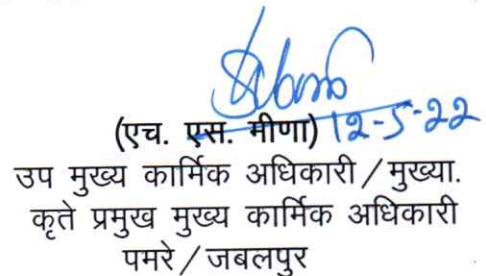 (एच. एस. मीणा) 12-5-22
उप मुख्य कार्मिक अधिकारी/मुख्या.
कृते प्रमुख मुख्य कार्मिक अधिकारी
पमरे/जबलपुर